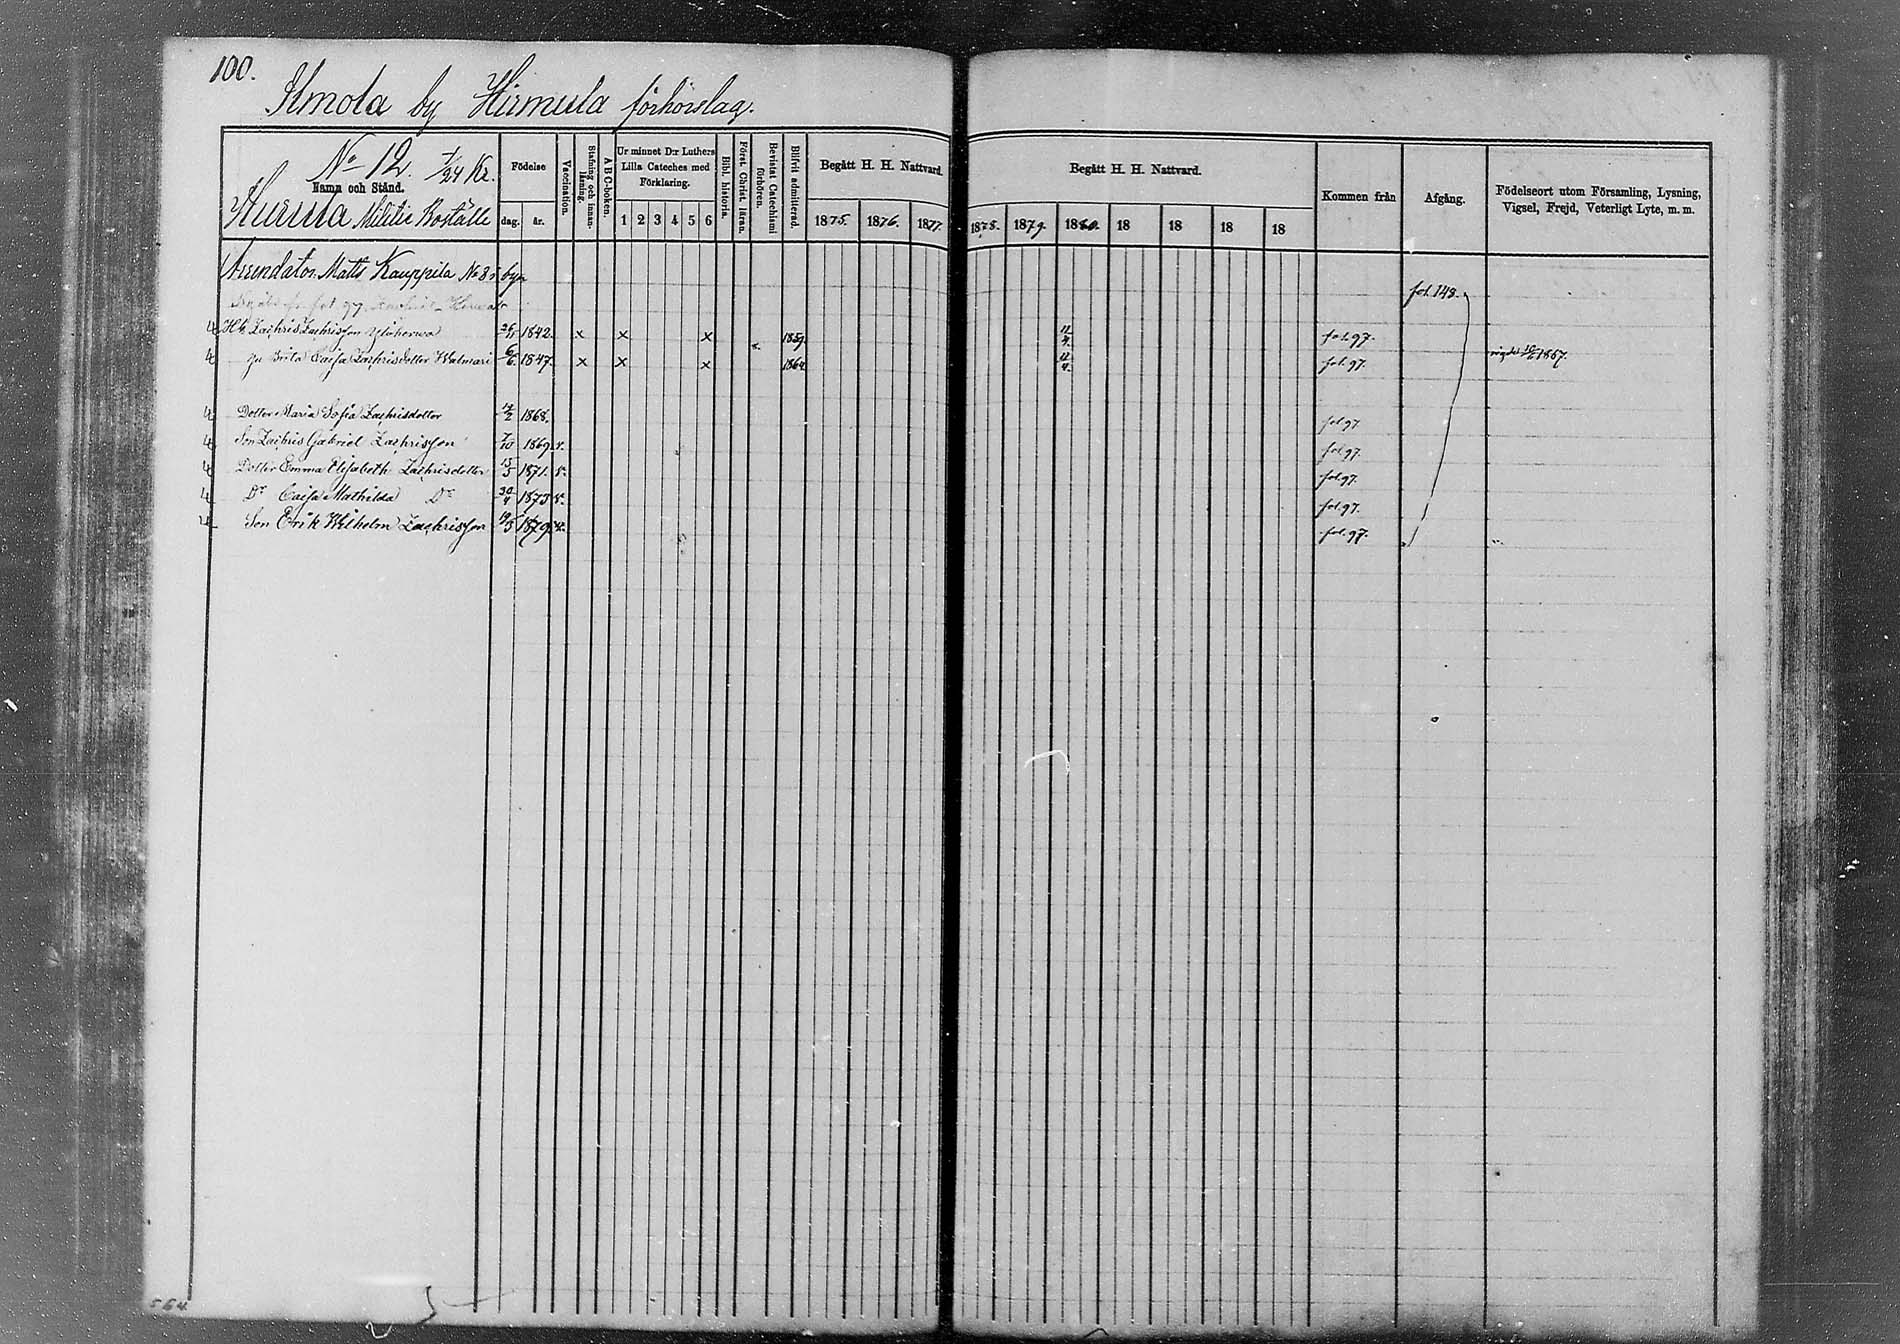 100.
Ilmola by Hirmula förhörslag.
No 12. 1/24 Kr.
Namn och Stånd.
Hurula Militie Boställe
Födelse
dag. år.
Vaccination.
Stafning och innan-läsning.
A B C-boken.
Ur minnet D:r Luthers Lilla Cateches med Förklaring.
1 2 3 4 5 6
Bibl. historia.
Först. Christ. läran.
Bevistat Catechismi förhören.
Blifvit admitterad.
Begått H. H. Nattvard.
1875. 1876. 1877.
Begått H. H. Nattvard.
1878. 1879. 1880. 18 18 18 18
Kommen från
Afgång.
Födelseort utom Församling, Lysning, Vigsel, Frejd, Veterligt Lyte, m. m.
Arrendator Matts Kauppila No 8 i byn
fol. 97
fol. 148.
Zachris Zachrisson 1842. x x x 1859. 11/4. fol. 97.
hu Brita Caisa Zachrisdotter 6/6. 1847. x x x 1864 11/4. fol. 97. 1867.
Dotter Maria Sofia Zachrisdotter 1868. fol 97
Son Zachris Gabriel Zachrisson 7/10 1869. v. fol 97.
Dotter Emma Elisabeth Zachrisdotter 1871. v. fol. 97.
Dr Caisa Mathilda Dr 1873 v. fol. 97.
Son Erik Wilhelm Zachrisson 1879. v. fol. 97.
564